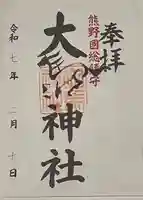 奉拝
熊野國総鎮守
神社
令和七年二月十日